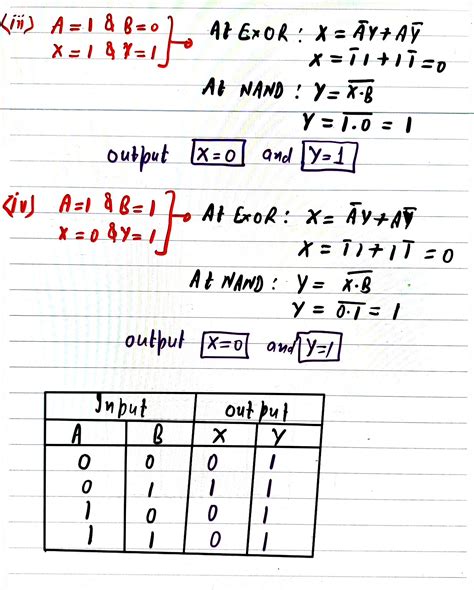 (iii) A=1 & B=0
X=1 & Y=1
At ExOR : X = A̅Y+AY̅
X = 1̅1+11̅=0
At NAND : Y= \overline{X·B}
Y= \overline{1·0} = 1
output X=0 and Y=1
(iv) A=1 & B=1
X=0 & Y=1
At ExOR : X= A̅Y+AY̅
X= 1̅1+11̅ =0
At NAND : Y= \overline{X·B}
Y = \overline{0·1} = 1
output X=0 and Y=1
Input output
A B X Y
0 0 0 1
0 1 1 1
1 0 0 1
1 1 0 1